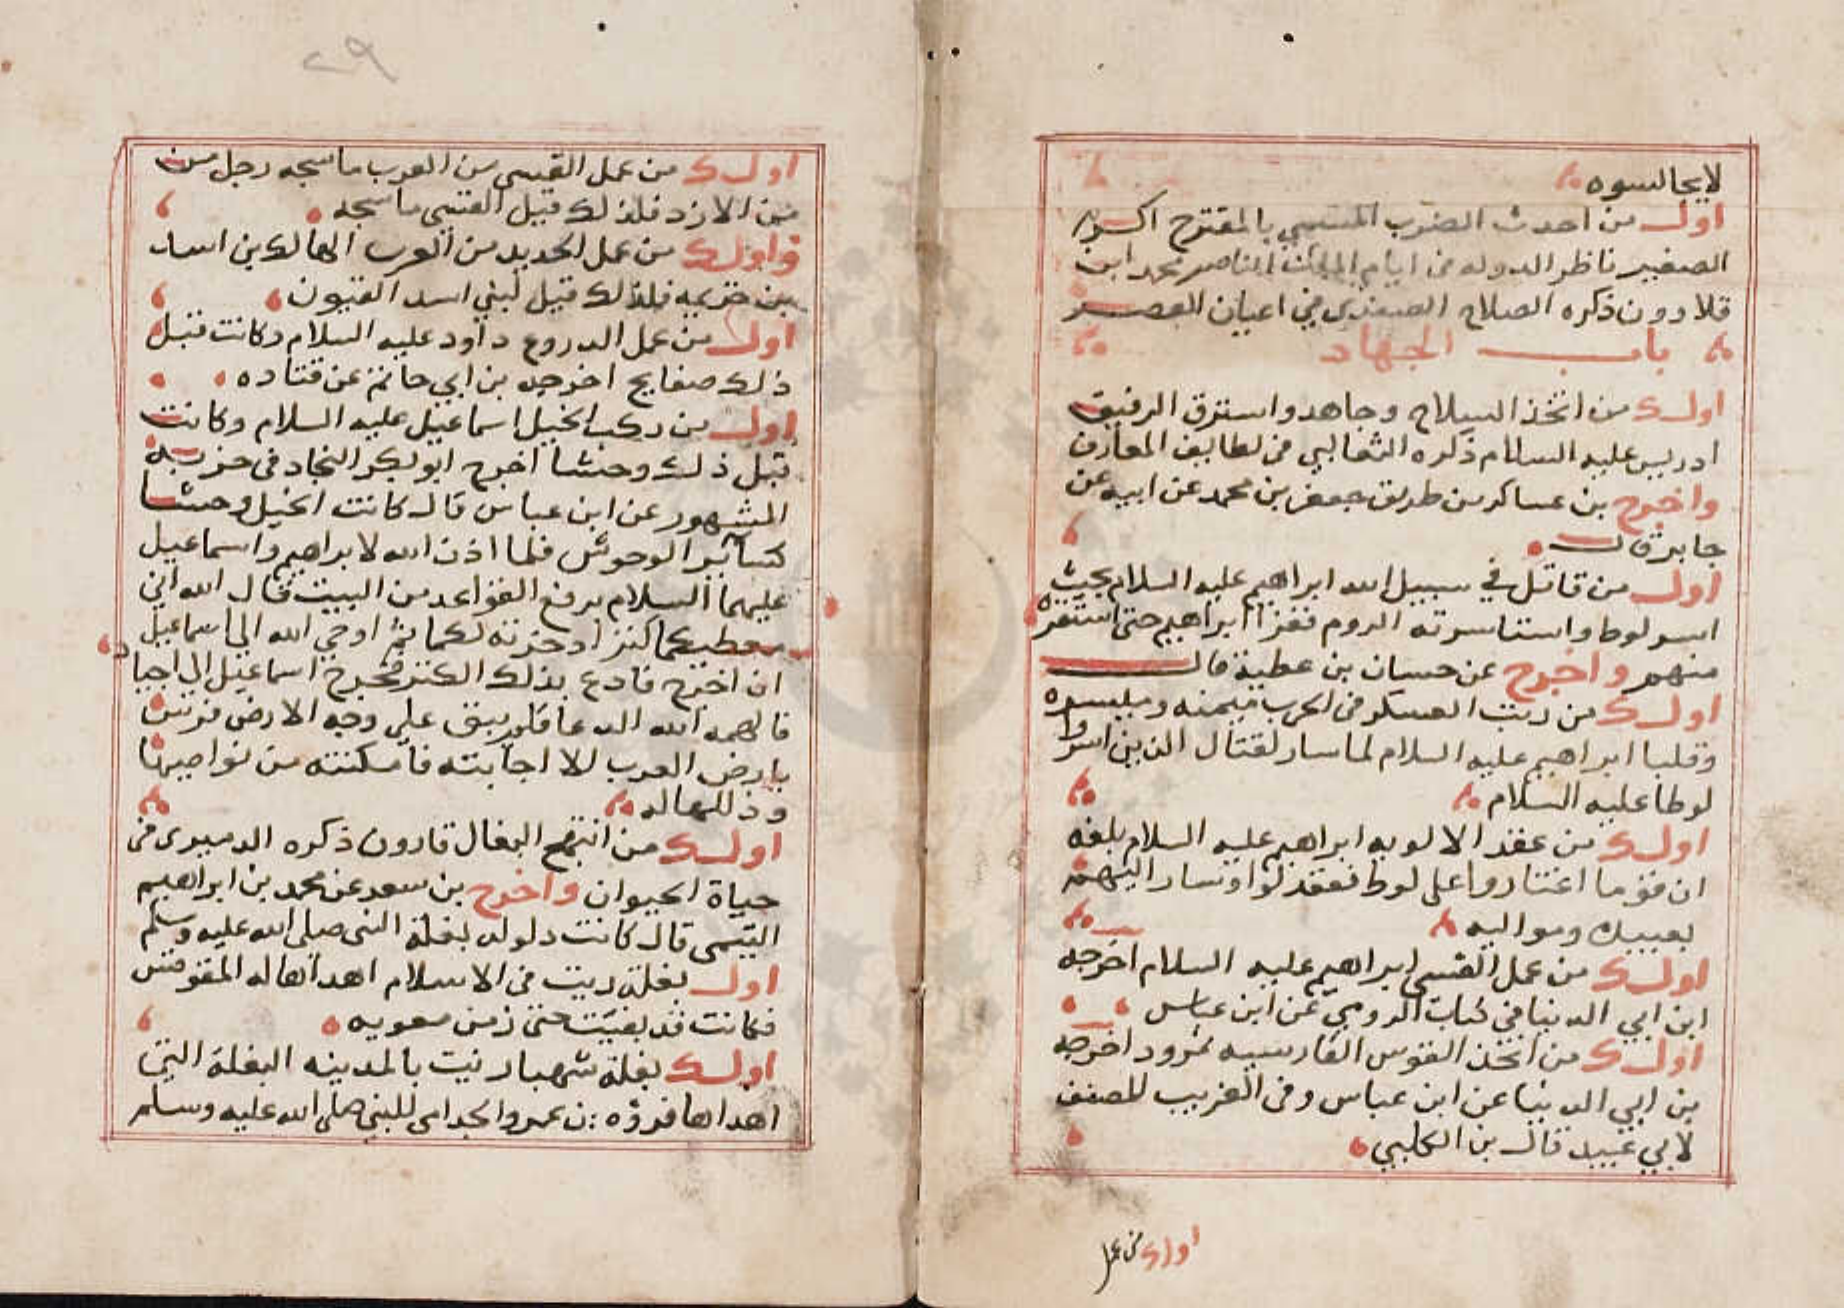 لا يجالسوه
اول من احدث الضرب المسمي بالمقترح اكرم
الصغير ناظر الدوله في ايام الملك الناصر محمد ابن
قلاوون ذكره الصلاح الصفدي في اعيان العصر
باب الجهاد
اول من اتخذ السلاح وجاهد واسترق الرقيق
ادريس عليه السلام ذكره الثعالبي في لطايف المعارف
واخرج بن عساكر من طريق جعفر بن محمد عن ابيه عن
جابر قال
اول من قاتل في سبيل الله ابراهيم عليه السلام بحيث
اسر لوط واستاسرته الروم فغزا ابراهيم حتى استنقذه
منهم واخرج عن حسان بن عطية قال
اول من رتب العسكر في الحرب ميمنه وميسره
وقلبا ابراهيم عليه السلام لما سار لقتال الذين اسروا
لوطا عليه السلام
اول من عقد الالويه ابراهيم عليه السلام بلغه
ان قوما اغتاروا على لوط فعقد لوا وسار اليهم
بعبيده ومواليه
اول من عمل القسي ابراهيم عليه السلام اخرجه
ابن ابي الدنيا في كتاب الرومي عن ابن عباس
اول من اتخذ القوس الفارسيه نمرود اخرجه
بن ابي الدنيا عن ابن عباس وفى الغريب المصنف
لابي عبيد قال بن الكلبي
اول من عمل
٢٩
اول من عمل القسي من العرب ماسجه رجل من
من الازد فلذلك قيل القسي ماسجه
واول من عمل الحديد من العرب الهالك بن اسد
بن خزيمه فلذلك قيل لبني اسد القيون
اول من عمل الدروع داود عليه السلام وكانت قبل
ذلك صفايح اخرجه بن ابي حاتم عن قتاده
اول من ركب الخيل اسماعيل عليه السلام وكانت
قبل ذلك وحشا اخرج ابو بكر النجاد في جزيه
المشهور عن ابن عباس قال كانت الخيل وحشا
كسائر الوحوش فلما اذن الله لابراهيم واسماعيل
عليهما السلام برفع القواعد من البيت قال الله اني
معطيكما كنز ادخرته لكما ثم اوحي الله الي اسماعيل
ان اخرج فادع بذلك الكنز فخرج اسماعيل الى اجياد
فالهمه الله الدعا فلم يبق على وجه الارض فرس
بارض العرب الا اجابته فامكنته من نواصيها
وذللها له
اول من انتج البغال قارون ذكره الدميرى فى
حياة الحيوان واخرج بن سعد عن محمد بن ابراهيم
التيمى قال كانت دلدل بغلة النبى صلى الله عليه وسلم
اول بغلة ريت فى الاسلام اهداها له المقوقس
فكانت قد بقيت حتى زمن معويه
اول بغلة شهبا ريت بالمدينه البغلة التى
اهداها فروه بن عمرو الجدامى للنبى صلى الله عليه وسلم